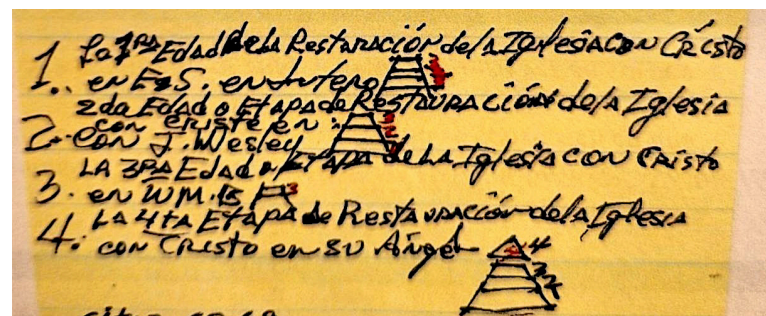 1. La 1RA Edad de la Restauración de la Iglesia con Cristo
en E. S. en Lutero 3
2da Edad o Etapa de Restauración de la Iglesia
con Cristo en :
2. con J. Wesley 3 2
LA 3RA Edad o Etapa de LA Iglesia con Cristo
3. en WM. B 3
LA 4ta Etapa de Restauración de la Iglesia
4. con Cristo en su Ángel 4
3
2